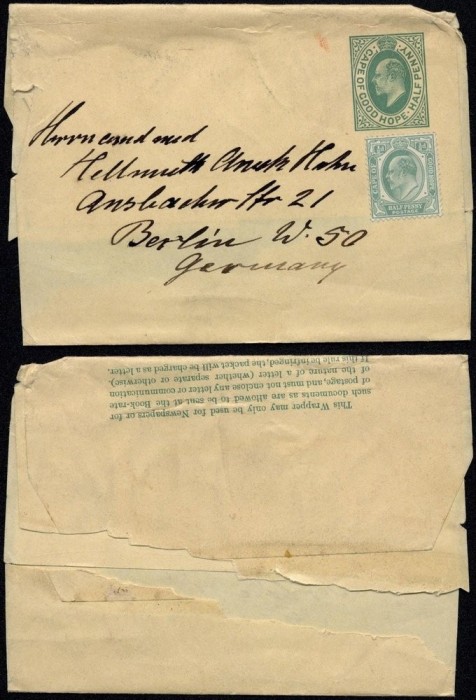 CAPE OF GOOD HOPE · HALF PENNY ·
HALF-PENNY
POSTAGE
Herrn cand med
Hellmuth
Ansbacher Str 21
Berlin W. 50
Germany
This Wrapper may only be used for Newspapers or for
such documents as are allowed to be sent at the Book-rate
of postage, and must not enclose any letter or communication
of the nature of a letter (whether separate or otherwise).
If this rule be infringed, the packet will be charged as a letter.